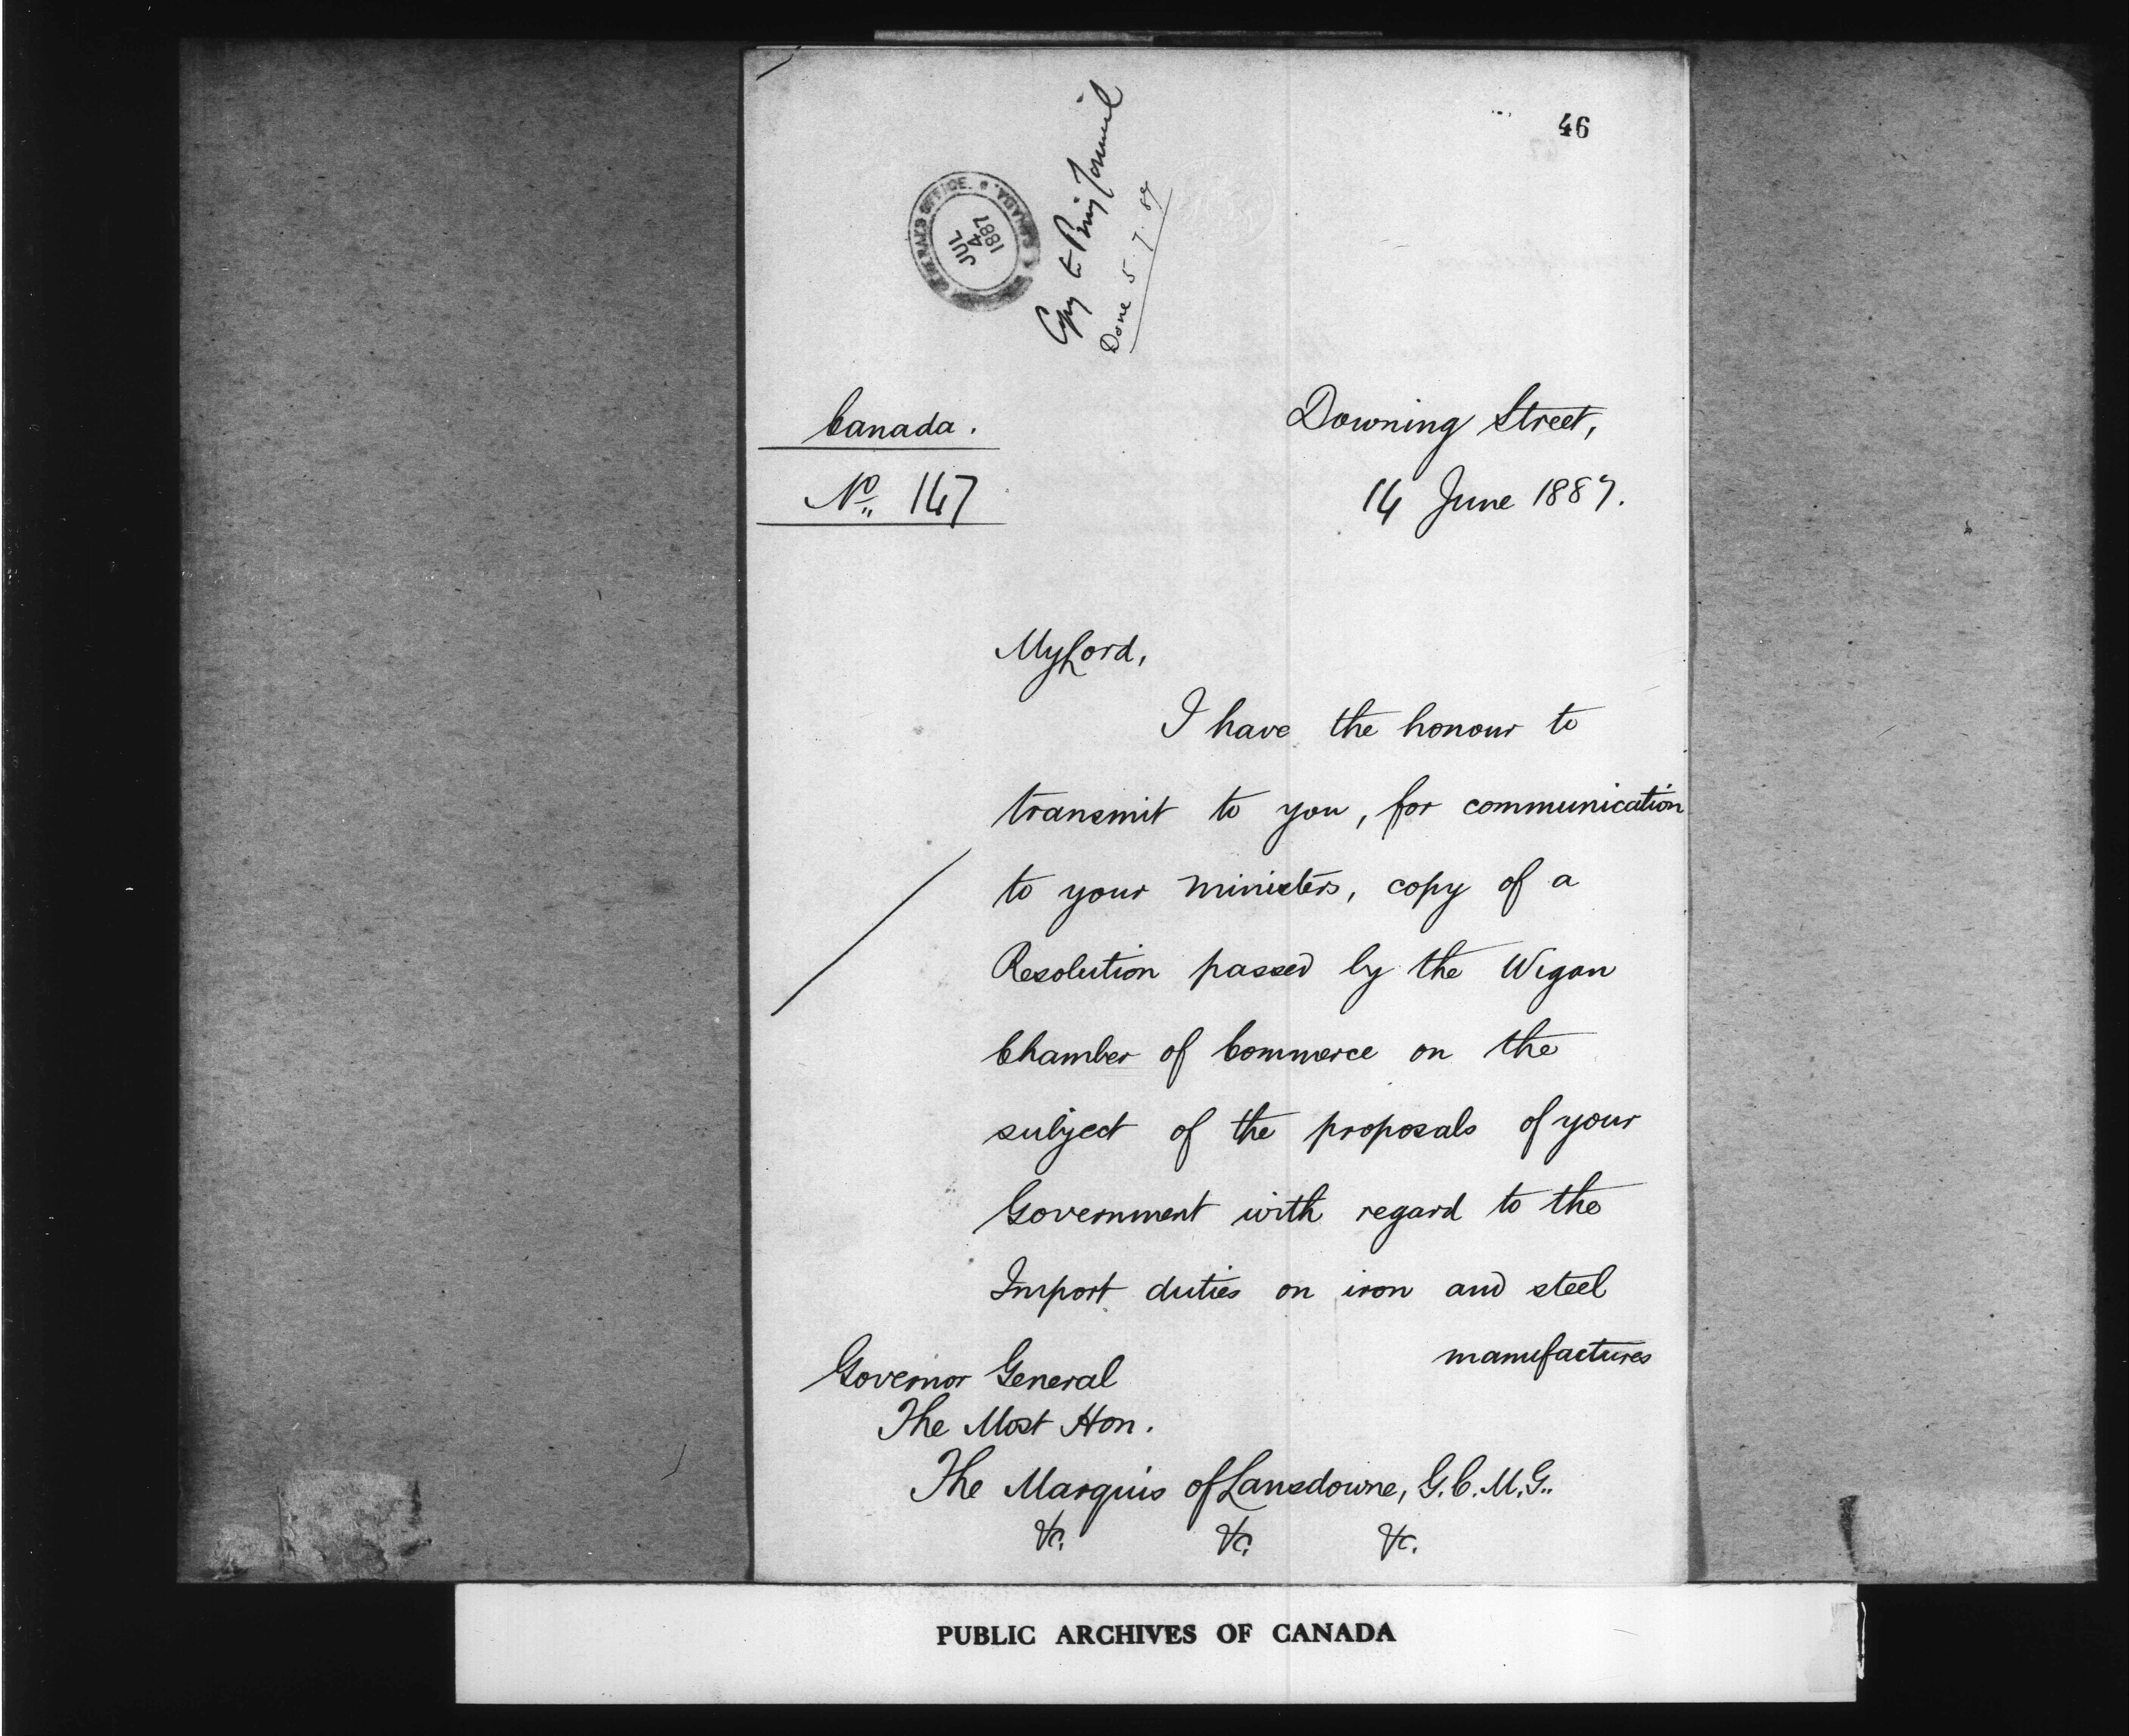 46
GENERAL'S OFFICE. * CANADA. *
JUL
4
1887
Copy to Privy Council
Done 5.7.87
Canada.
Downing Street,
No. 147
14 June 1887.
My Lord,
I have the honour to
transmit to you, for communication
to your ministers, copy of a
Resolution passed by the Wigan
Chamber of Commerce on the
subject of the proposals of your
Government with regard to the
Import duties on iron and steel
manufactures
Governor General
The Most Hon.
The Marquis of Lansdowne, G.C.M.G..
&c. &c. &c.
PUBLIC ARCHIVES OF CANADA